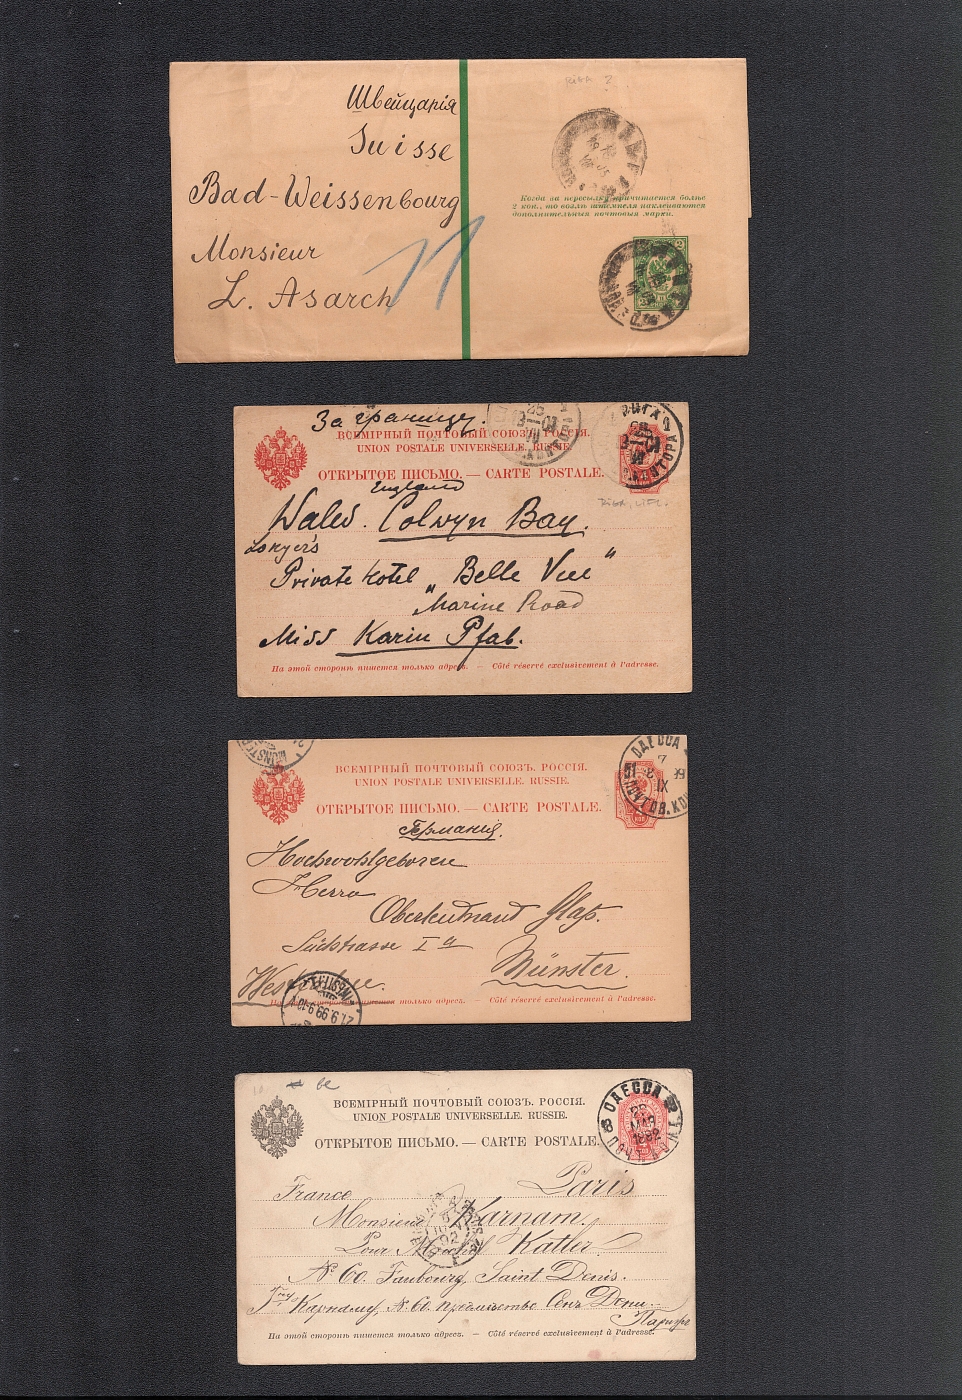 Швейцарія
Suisse
Bad-Weissenbourg
Monsieur
L. Asarch
Когда за пересылку причитается болѣе
2 коп., то возлѣ штемпеля наклеиваются
дополнительныя почтовыя марки.
За границу.
ВСЕМІРНЫЙ ПОЧТОВЫЙ СОЮЗЪ. РОССІЯ.
UNION POSTALE UNIVERSELLE. RUSSIE.
ОТКРЫТОЕ ПИСЬМО. — CARTE POSTALE.
England
Wales. Colwyn Bay.
Private Hotel „Belle Vue"
Marine Road
Miss Karin Pfab.
На этой сторонѣ пишется только адресъ. — Côté réservé exclusivement à l'adresse.
РИГА
КОНТОРА
ВСЕМІРНЫЙ ПОЧТОВЫЙ СОЮЗЪ. РОССІЯ.
UNION POSTALE UNIVERSELLE. RUSSIE.
ОТКРЫТОЕ ПИСЬМО. — CARTE POSTALE.
ОДЕССА
7
IX
Германия.
Hochwohlgeboren
Herrn
Oberleutnant
Südstrasse I a
Münster.
На этой сторонѣ пишется только адресъ. — Côté réservé exclusivement à l'adresse.
21.9.99.9-10
ВСЕМІРНЫЙ ПОЧТОВЫЙ СОЮЗЪ. РОССІЯ.
UNION POSTALE UNIVERSELLE. RUSSIE.
ОТКРЫТОЕ ПИСЬМО. — CARTE POSTALE.
ОДЕССА
МАР
1892
France Paris
Monsieur Karnam.
Pour Katler
№ 60. Faubourg, Saint Denis.
Гну Карнаму, № 60. предмѣстье Сенъ Дени
Парижъ
На этой сторонѣ пишется только адресъ. — Côté réservé exclusivement à l'adresse.